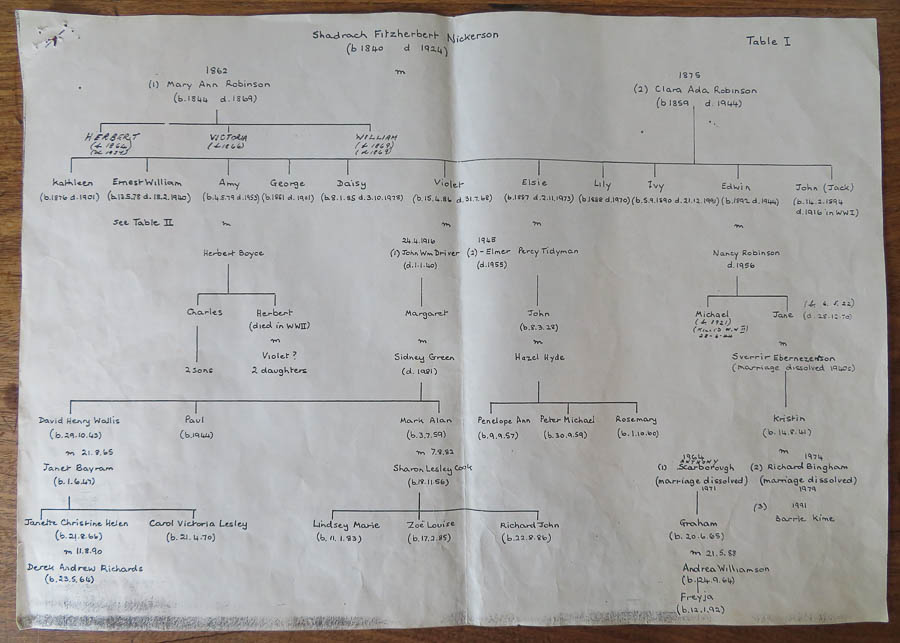 Shadrach Fitzherbert Nickerson
(b 1840 d 1924)
Table I
m
1862
(1) Mary Ann Robinson
(b. 1844 d. 1869)
1875
(2) Clara Ada Robinson
(b 1859 d. 1944)
HERBERT
(b 1864)
VICTORIA
(b 1866)
WILLIAM
(b 1869)
(d 1869)
Kathleen
(b. 1876 d. 1901)
Ernest William
(b. 13.5.78 d. 18.2.1960)
Amy
(b. 14.5.79 d. 1955)
George
(b. 1881 d. 1901)
Daisy
(b. 8.1.85 d. 3.10.1978)
Violet
(b. 15.4.86 d. 31.7.68)
Elsie
(b. 1887 d. 2.11.1973)
Lily
(b. 1888 d. 1970)
Ivy
(b. 5.9.1890 d. 21.12.1991)
Edwin
(b. 1892 d. 1944)
John (Jack)
(b. 14.2.1894
d. 1916 in WWI)
see Table II
m
m
m
Herbert Boyce
24.4.1916
(1) John Wm Driver
(d. 1.1.40)
1945
(2) - Elmer Percy Tidyman
(d. 1955)
Nancy Robinson
d. 1956
Charles
Herbert
(died in WWII)
m
Violet ?
2 sons
2 daughters
Margaret
m
Sidney Green
(d. 1981)
John
(b. 8.3.28)
m
Hazel Hyde
Michael
(b 1921)
28-6-44
Jane
(b 6.5.22)
(d. 28-12-70)
m
Sverrir Ebernezerson
(marriage dissolved 1940s)
David Henry Wallis
(b. 29.10.43)
m 21.8.65
Janet Bayram
(b. 1.6.47)
Paul
(b. 1944)
Mark Alan
(b. 3.7.59)
m 7.8.82
Sharon Lesley Cook
(b. 18.11.56)
Penelope Ann
(b. 9.9.57)
Peter Michael
(b. 30.9.59)
Rosemary
(b. 1.10.60)
Kristin
(b. 14.8.41)
m
1964
ANTHONY
(1) Scarborough
(marriage dissolved)
1971
1974
(2) Richard Bingham
(marriage dissolved)
1979
1991
(3) Barrie Kime
Janette Christine Helen
(b. 21.8.66)
m 11.8.90
Derek Andrew Richards
(b. 23.5.64)
Carol Victoria Lesley
(b. 21.4.70)
Lindsey Marie
(b. 11.1.83)
Zoë Louise
(b. 17.2.85)
Richard John
(b. 22.8.86)
Graham
(b. 20.6.65)
m 21.5.88
Andrea Williamson
(b. 24.9.64)
Freyja
(b. 12.1.92)